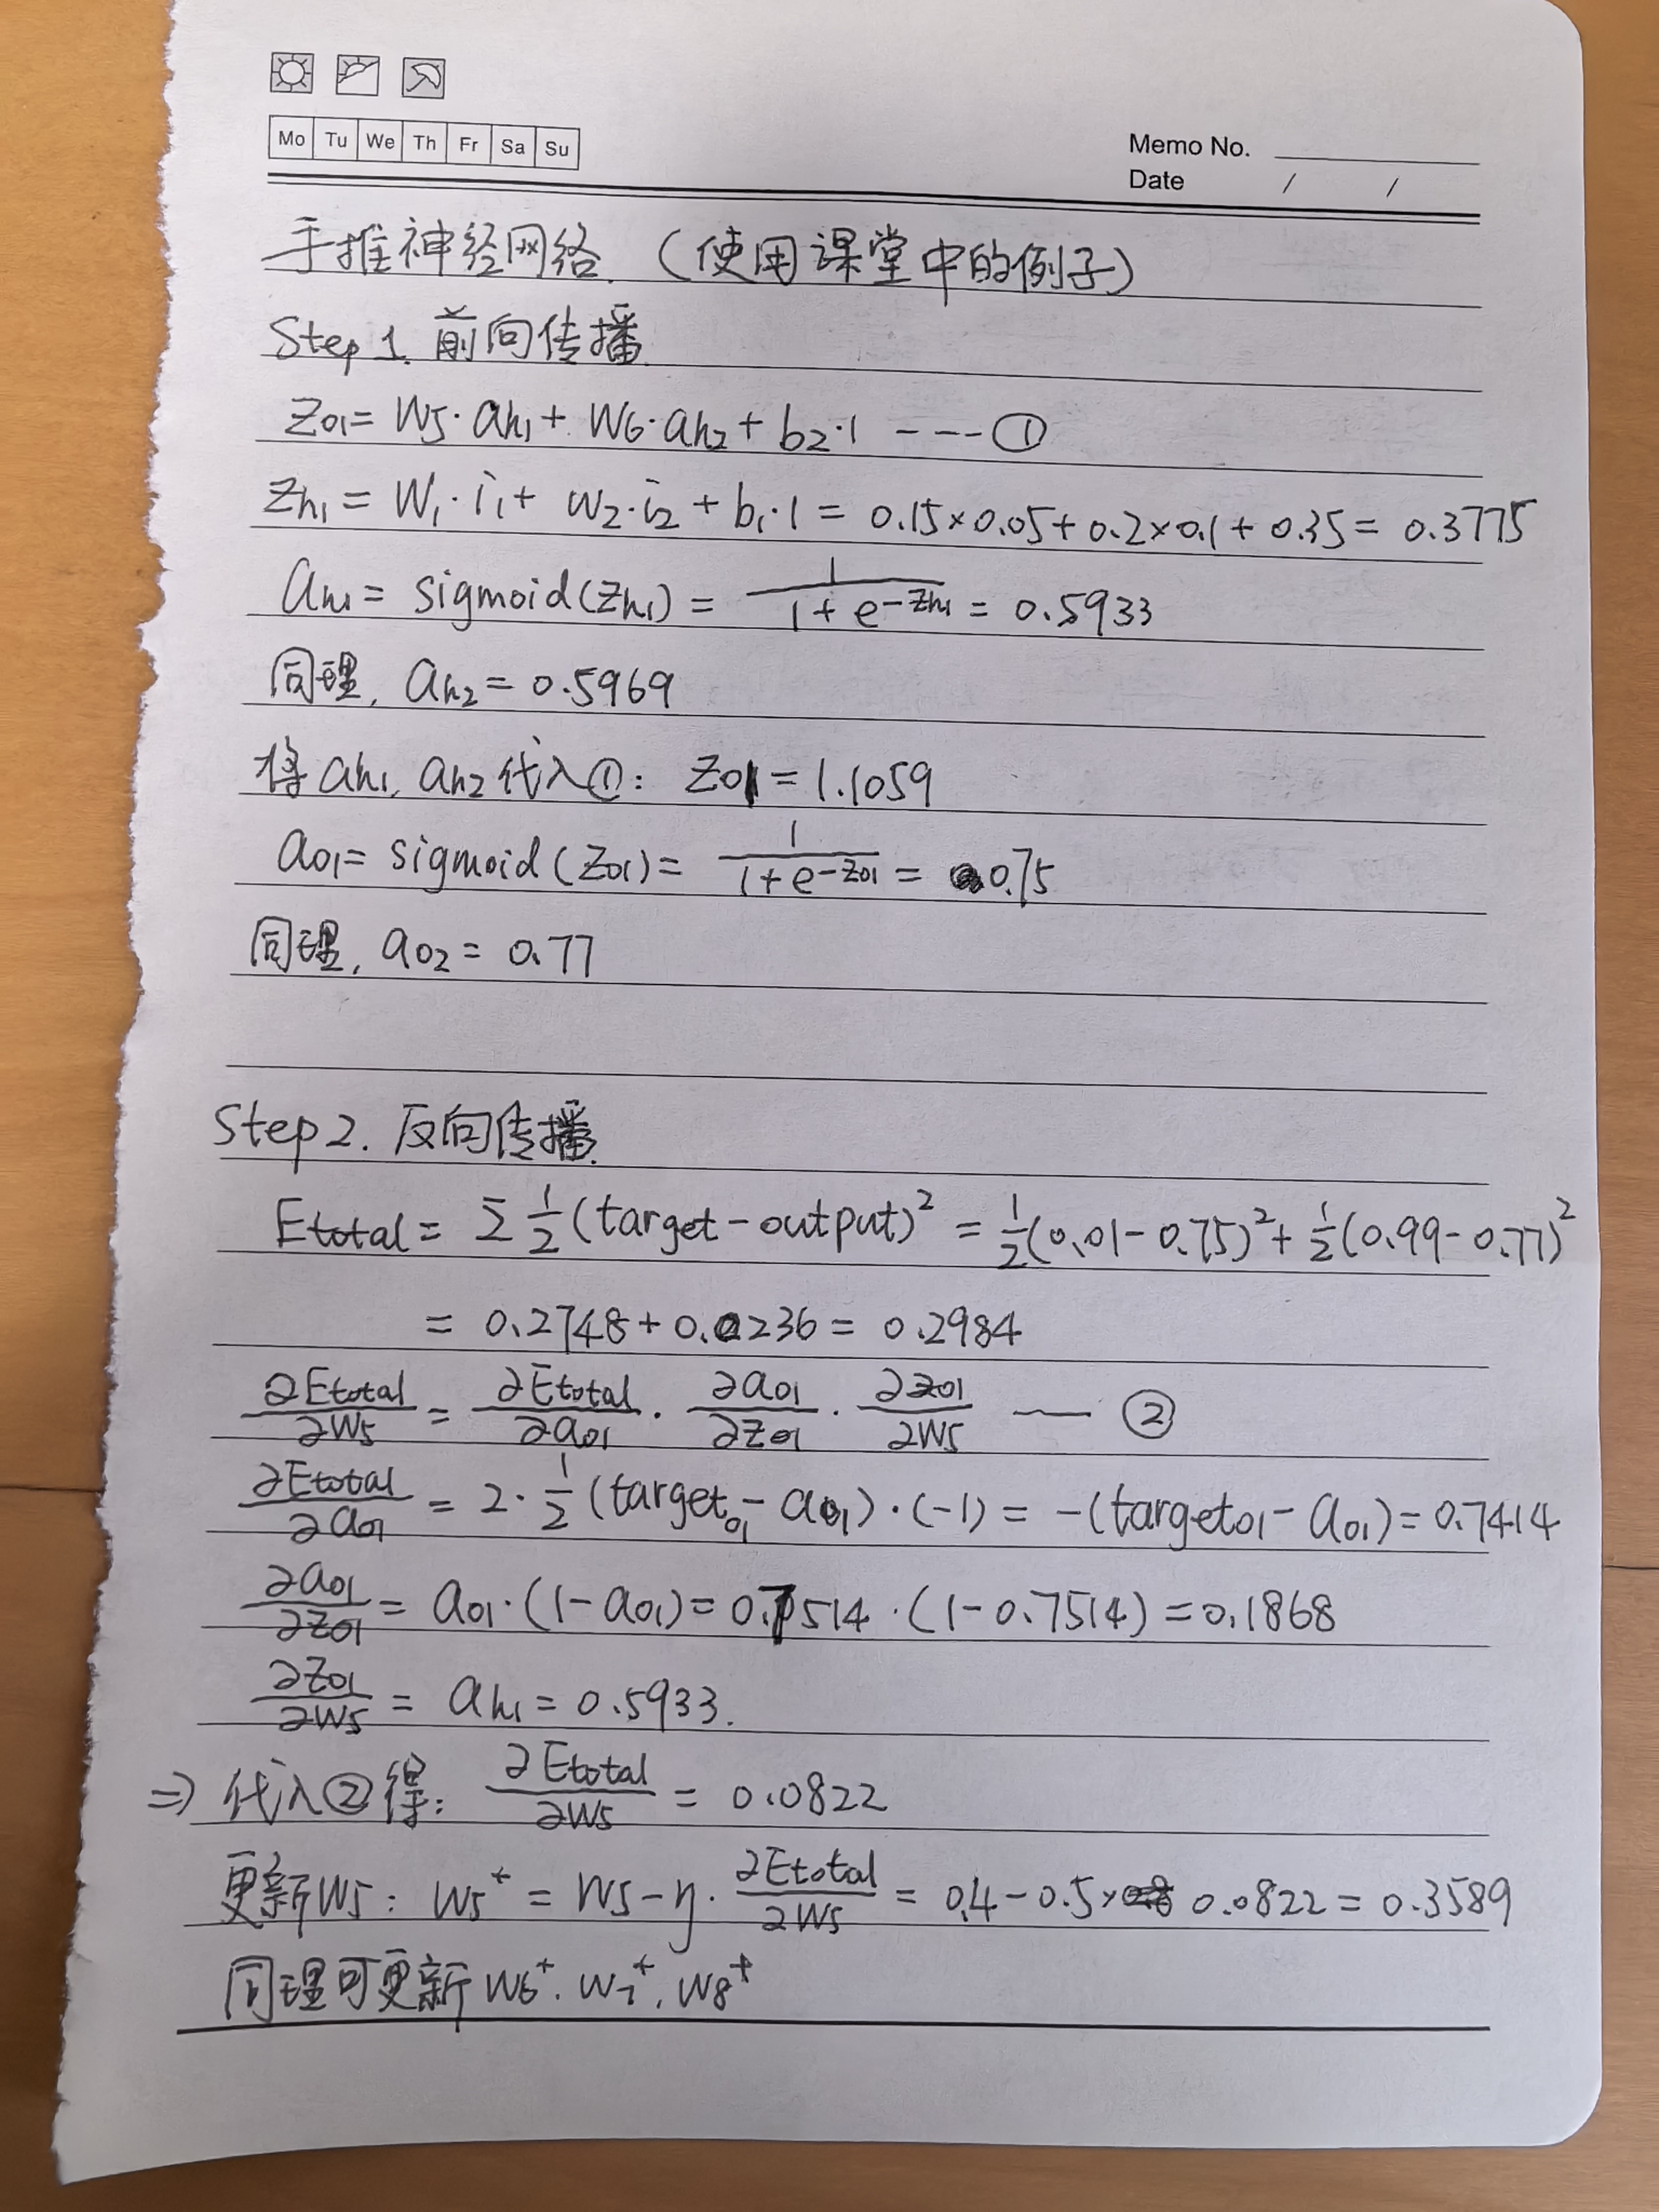 Mo Tu We Th Fr Sa Su
Memo No.
Date / /
手推神经网络.（使用课堂中的例子）
Step 1. 前向传播.
Zo1 = W5·ah1 + W6·ah2 + b2·1 ---①
Zh1 = W1·i1 + w2·i2 + b1·1 = 0.15×0.05+0.2×0.1+0.35 = 0.3775
ah1 = sigmoid(Zh1) = 1/(1+e^-Zh1) = 0.5933
同理, ah2 = 0.5969
将ah1, ah2代入①: Zo1 = 1.1059
ao1 = sigmoid(Zo1) = 1/(1+e^-Zo1) = 0.75
同理, ao2 = 0.77
Step 2. 反向传播.
Etotal = Σ 1/2 (target - output)² = 1/2(0.01-0.75)² + 1/2(0.99-0.77)²
= 0.2748+0.0236 = 0.2984
∂Etotal/∂W5 = ∂Etotal/∂ao1 · ∂ao1/∂Zo1 · ∂Zo1/∂W5 — ②
∂Etotal/∂ao1 = 2·1/2 (targeto1 - ao1)·(-1) = -(targeto1 - ao1) = 0.7414
∂ao1/∂Zo1 = ao1·(1-ao1) = 0.7514·(1-0.7514) = 0.1868
∂Zo1/∂W5 = ah1 = 0.5933.
⇒ 代入②得: ∂Etotal/∂W5 = 0.0822
更新W5: W5⁺ = W5 - η·∂Etotal/∂W5 = 0.4-0.5× 0.0822 = 0.3589
同理可更新 W6⁺. W7⁺. W8⁺